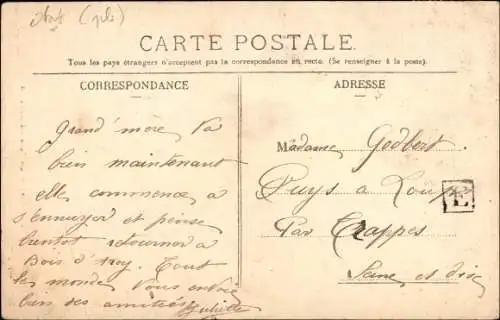 CARTE POSTALE
Tous les pays étrangers n'acceptent pas la correspondance au recto. (Se renseigner à la poste).
CORRESPONDANCE
Grand' mère va
bien maintenant
elle commence à
s'ennuyer et pense
bientot retourner à
Bois d'
Tout
le monde vous envoie
bien ses amitiés Juliette
ADRESSE
Madame Godbert
Puys à Loup
Par Trappes
Seine et Oise
E